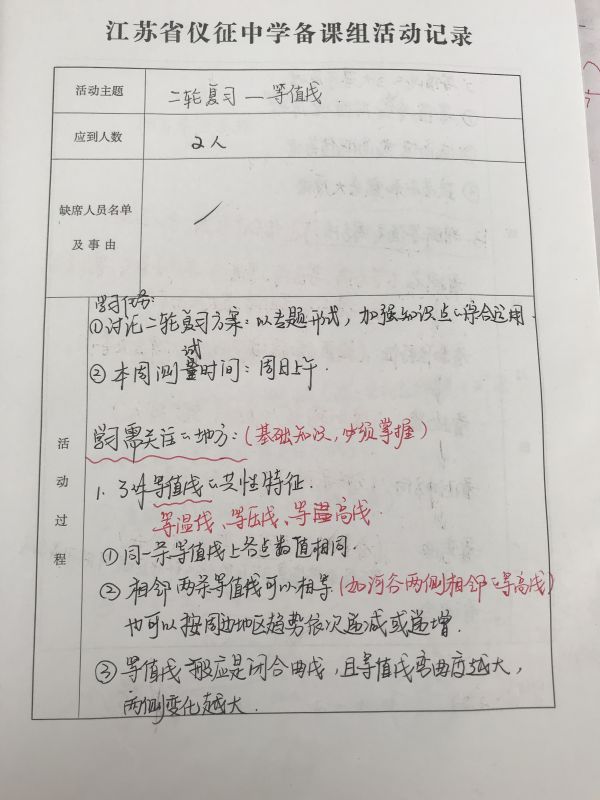 江苏省仪征中学备课组活动记录
活动主题
二轮复习—等值线.
应到人数
2人
缺席人员名单
及事由
活动过程
学习任务:
①讨论二轮复习方案:以专题形式,加强知识点的综合运用.
②本周测试时间:周日上午.
学习需关注的地方:(基础知识,必须掌握)
1.各种等值线的共性特征.
等温线、等压线、等高线.
①同一条等值线上各点数值相同.
②相邻两条等值线可以相等(如河谷两侧相邻的等高线)
也可以按周边地区趋势依次递减或递增.
③等值线一般应是闭合曲线,且等值线弯曲度越大,
两侧变化越大.